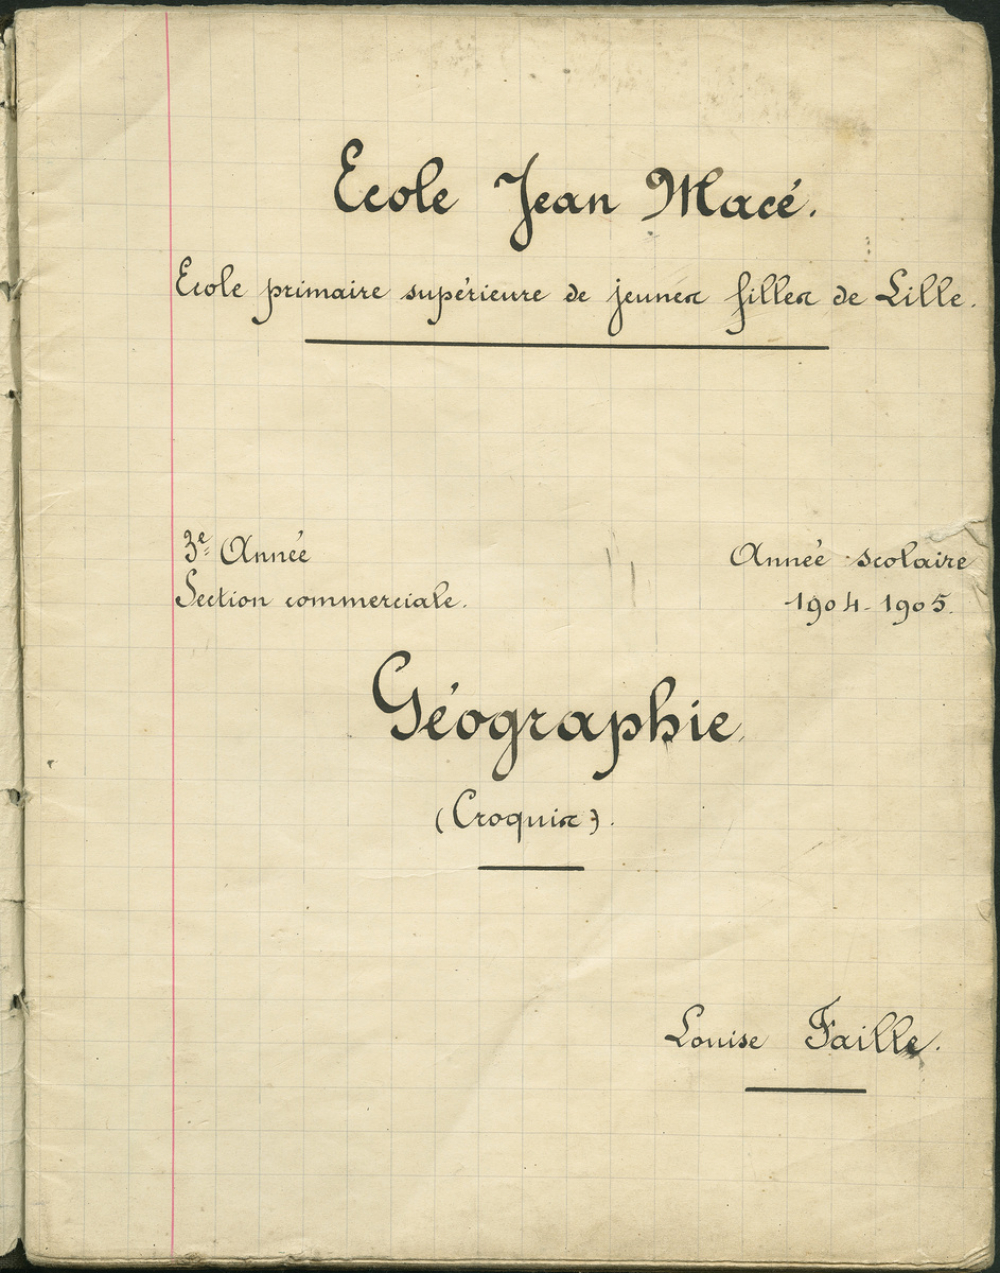 Ecole Jean Macé.
Ecole primaire supérieure de jeunes filles de Lille.
3e Année
Année scolaire
Section commerciale.
1904-1905.
Géographie.
(Croquis).
Louise Faille.